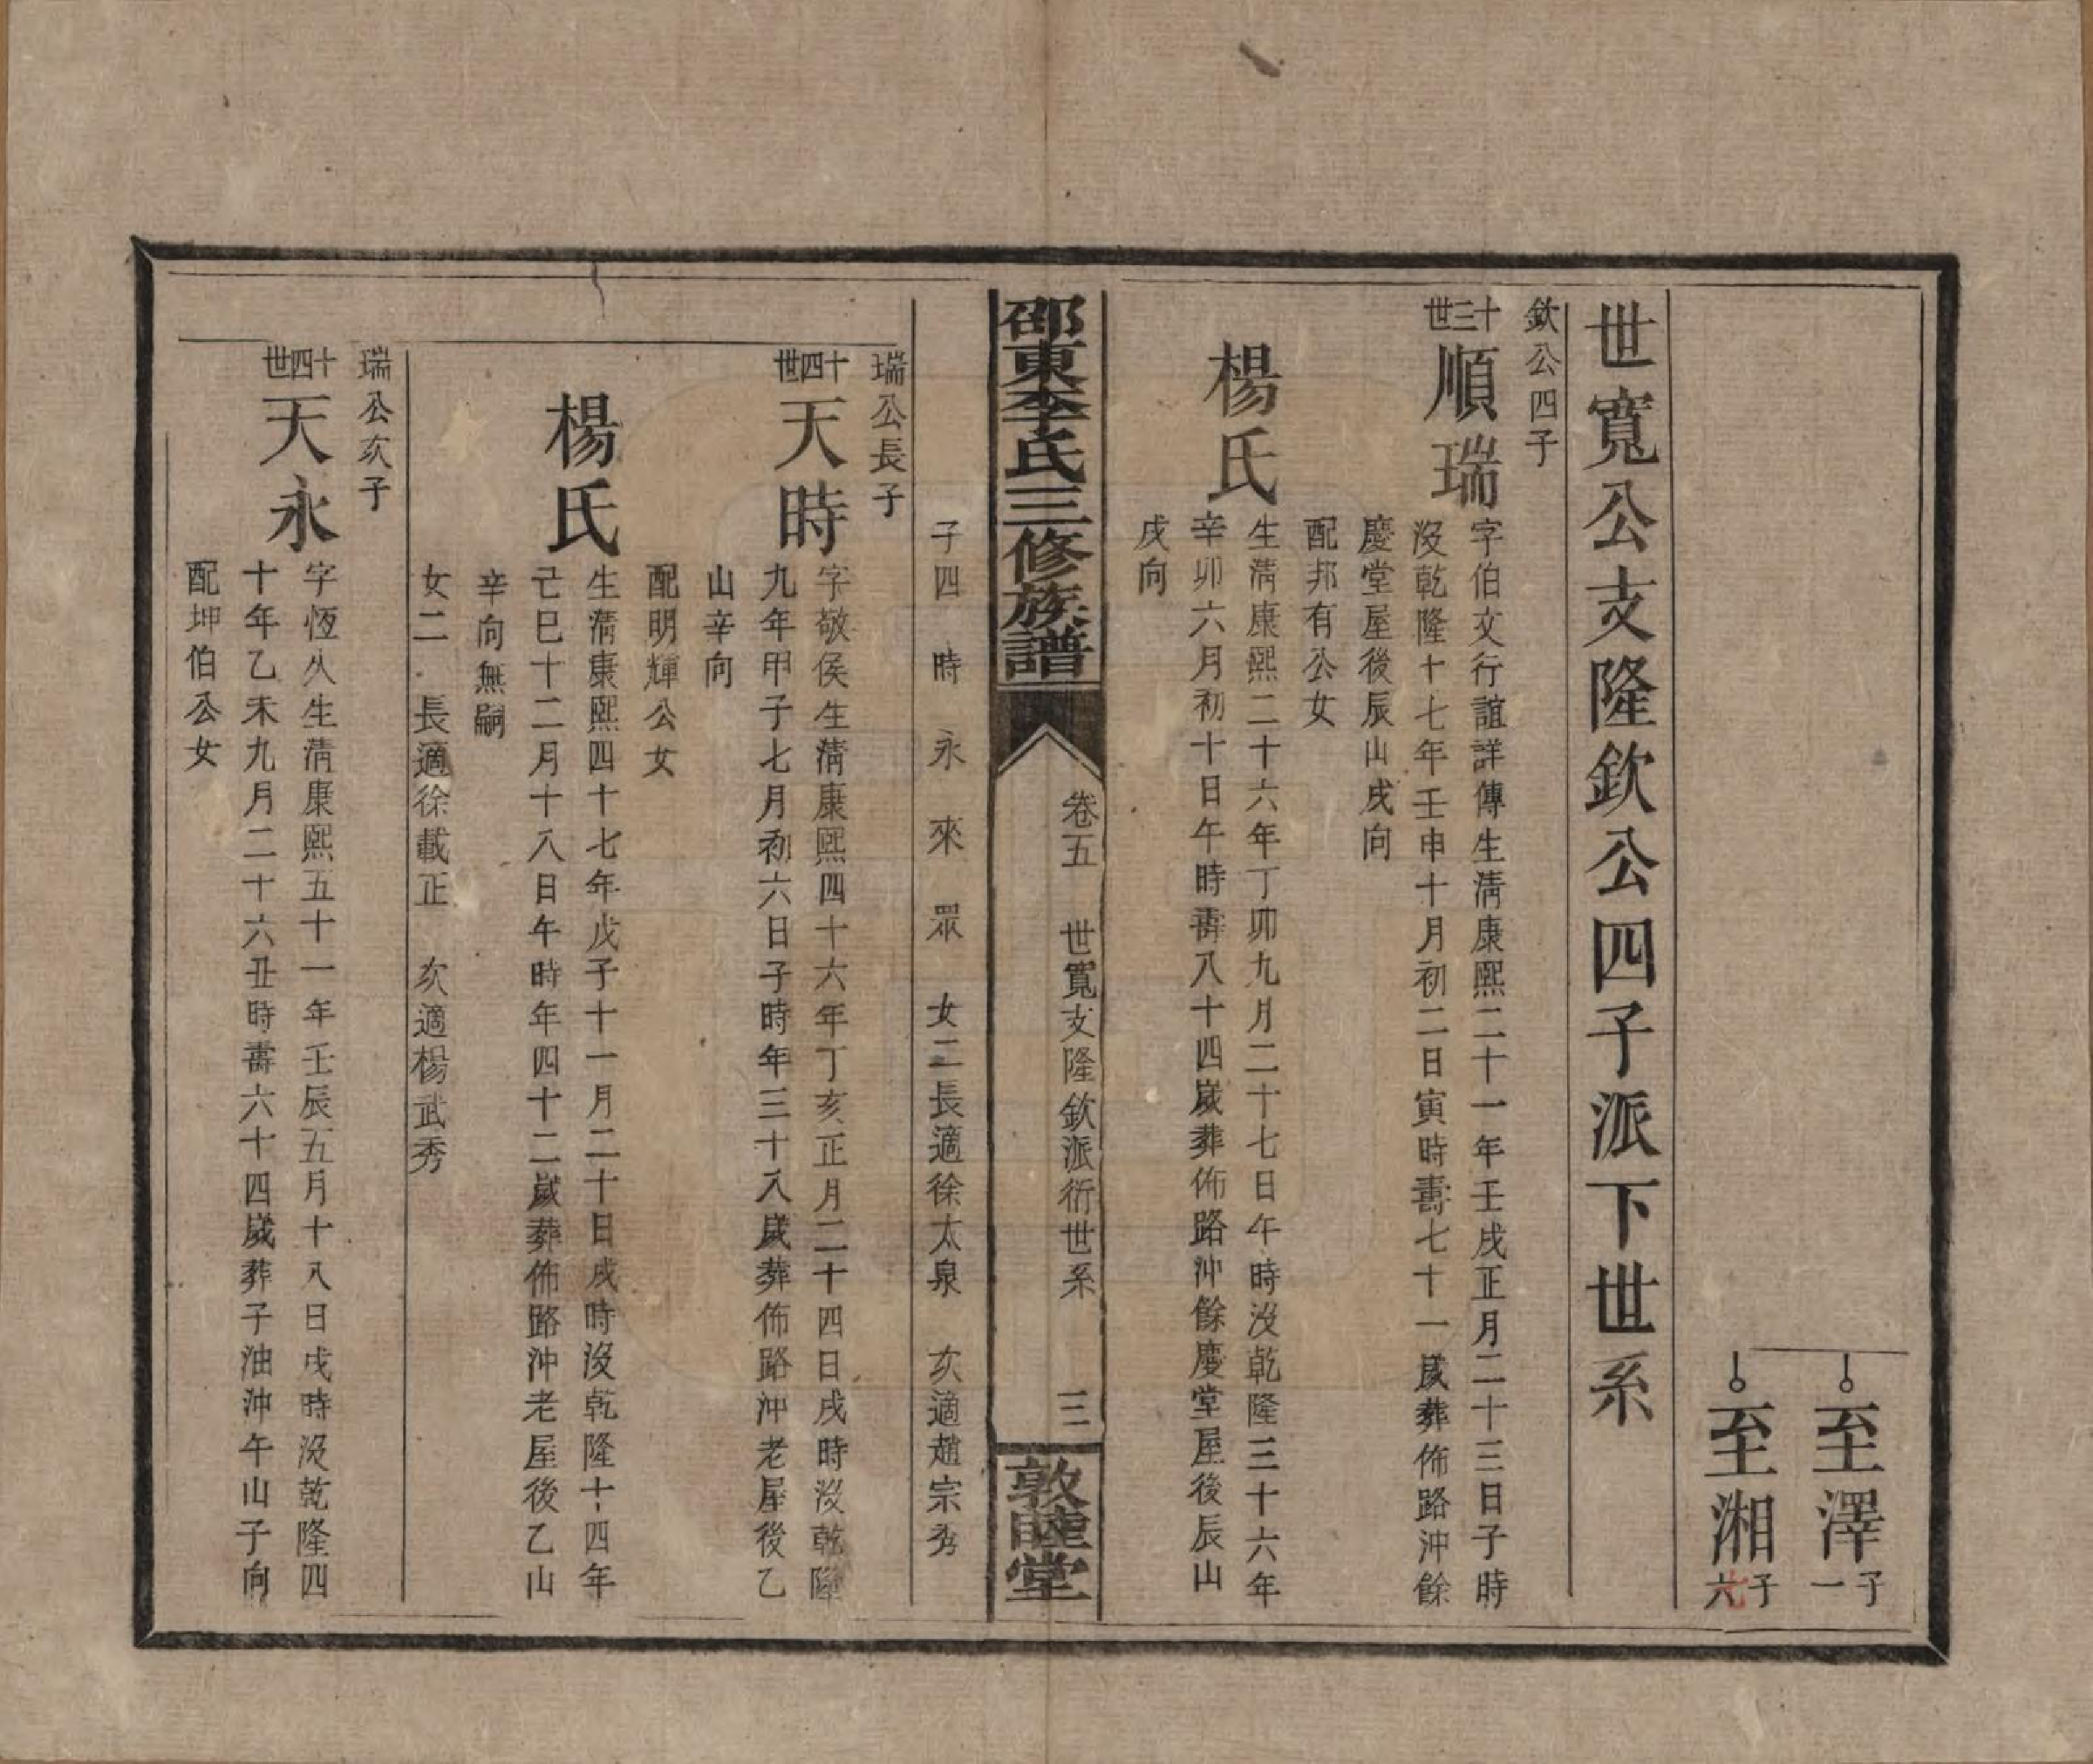 至澤 子一
至湘 子六七
世寬公支隆欽公四子派下世系
欽公四子
十三世
順瑞
字伯文行誼詳傳生清康熙二十一年壬戌正月二十三日子時
沒乾隆十七年壬申十月初二日寅時壽七十一歲葬佈路沖餘
慶堂屋後辰山戌向
配邦有公女
楊氏
生清康熙二十六年丁卯九月二十七日午時沒乾隆三十六年
辛卯六月初十日午時壽八十四歲葬佈路沖餘慶堂屋後辰山
戌向
邵東李氏三修族譜
卷五 世寬支隆欽派衍世系 三
敦睦堂
子四 時 永 來 眾 女二長適徐太泉 次適趙宗秀
瑞公長子
十四世
天時
字敬侯生清康熙四十六年丁亥正月二十四日戌時沒乾隆
九年甲子七月初六日子時年三十八歲葬佈路沖老屋後乙
山辛向
配明輝公女
楊氏
生清康熙四十七年戊子十一月二十日戌時沒乾隆十四年
己巳十二月十八日午時年四十二歲葬佈路沖老屋後乙山
辛向無嗣
女二 長適徐載正 次適楊武秀
瑞公次子
十四世
天永
字恆久生清康熙五十一年壬辰五月十八日戌時沒乾隆四
十年乙未九月二十六丑時壽六十四歲葬子油沖午山子向
配坤伯公女